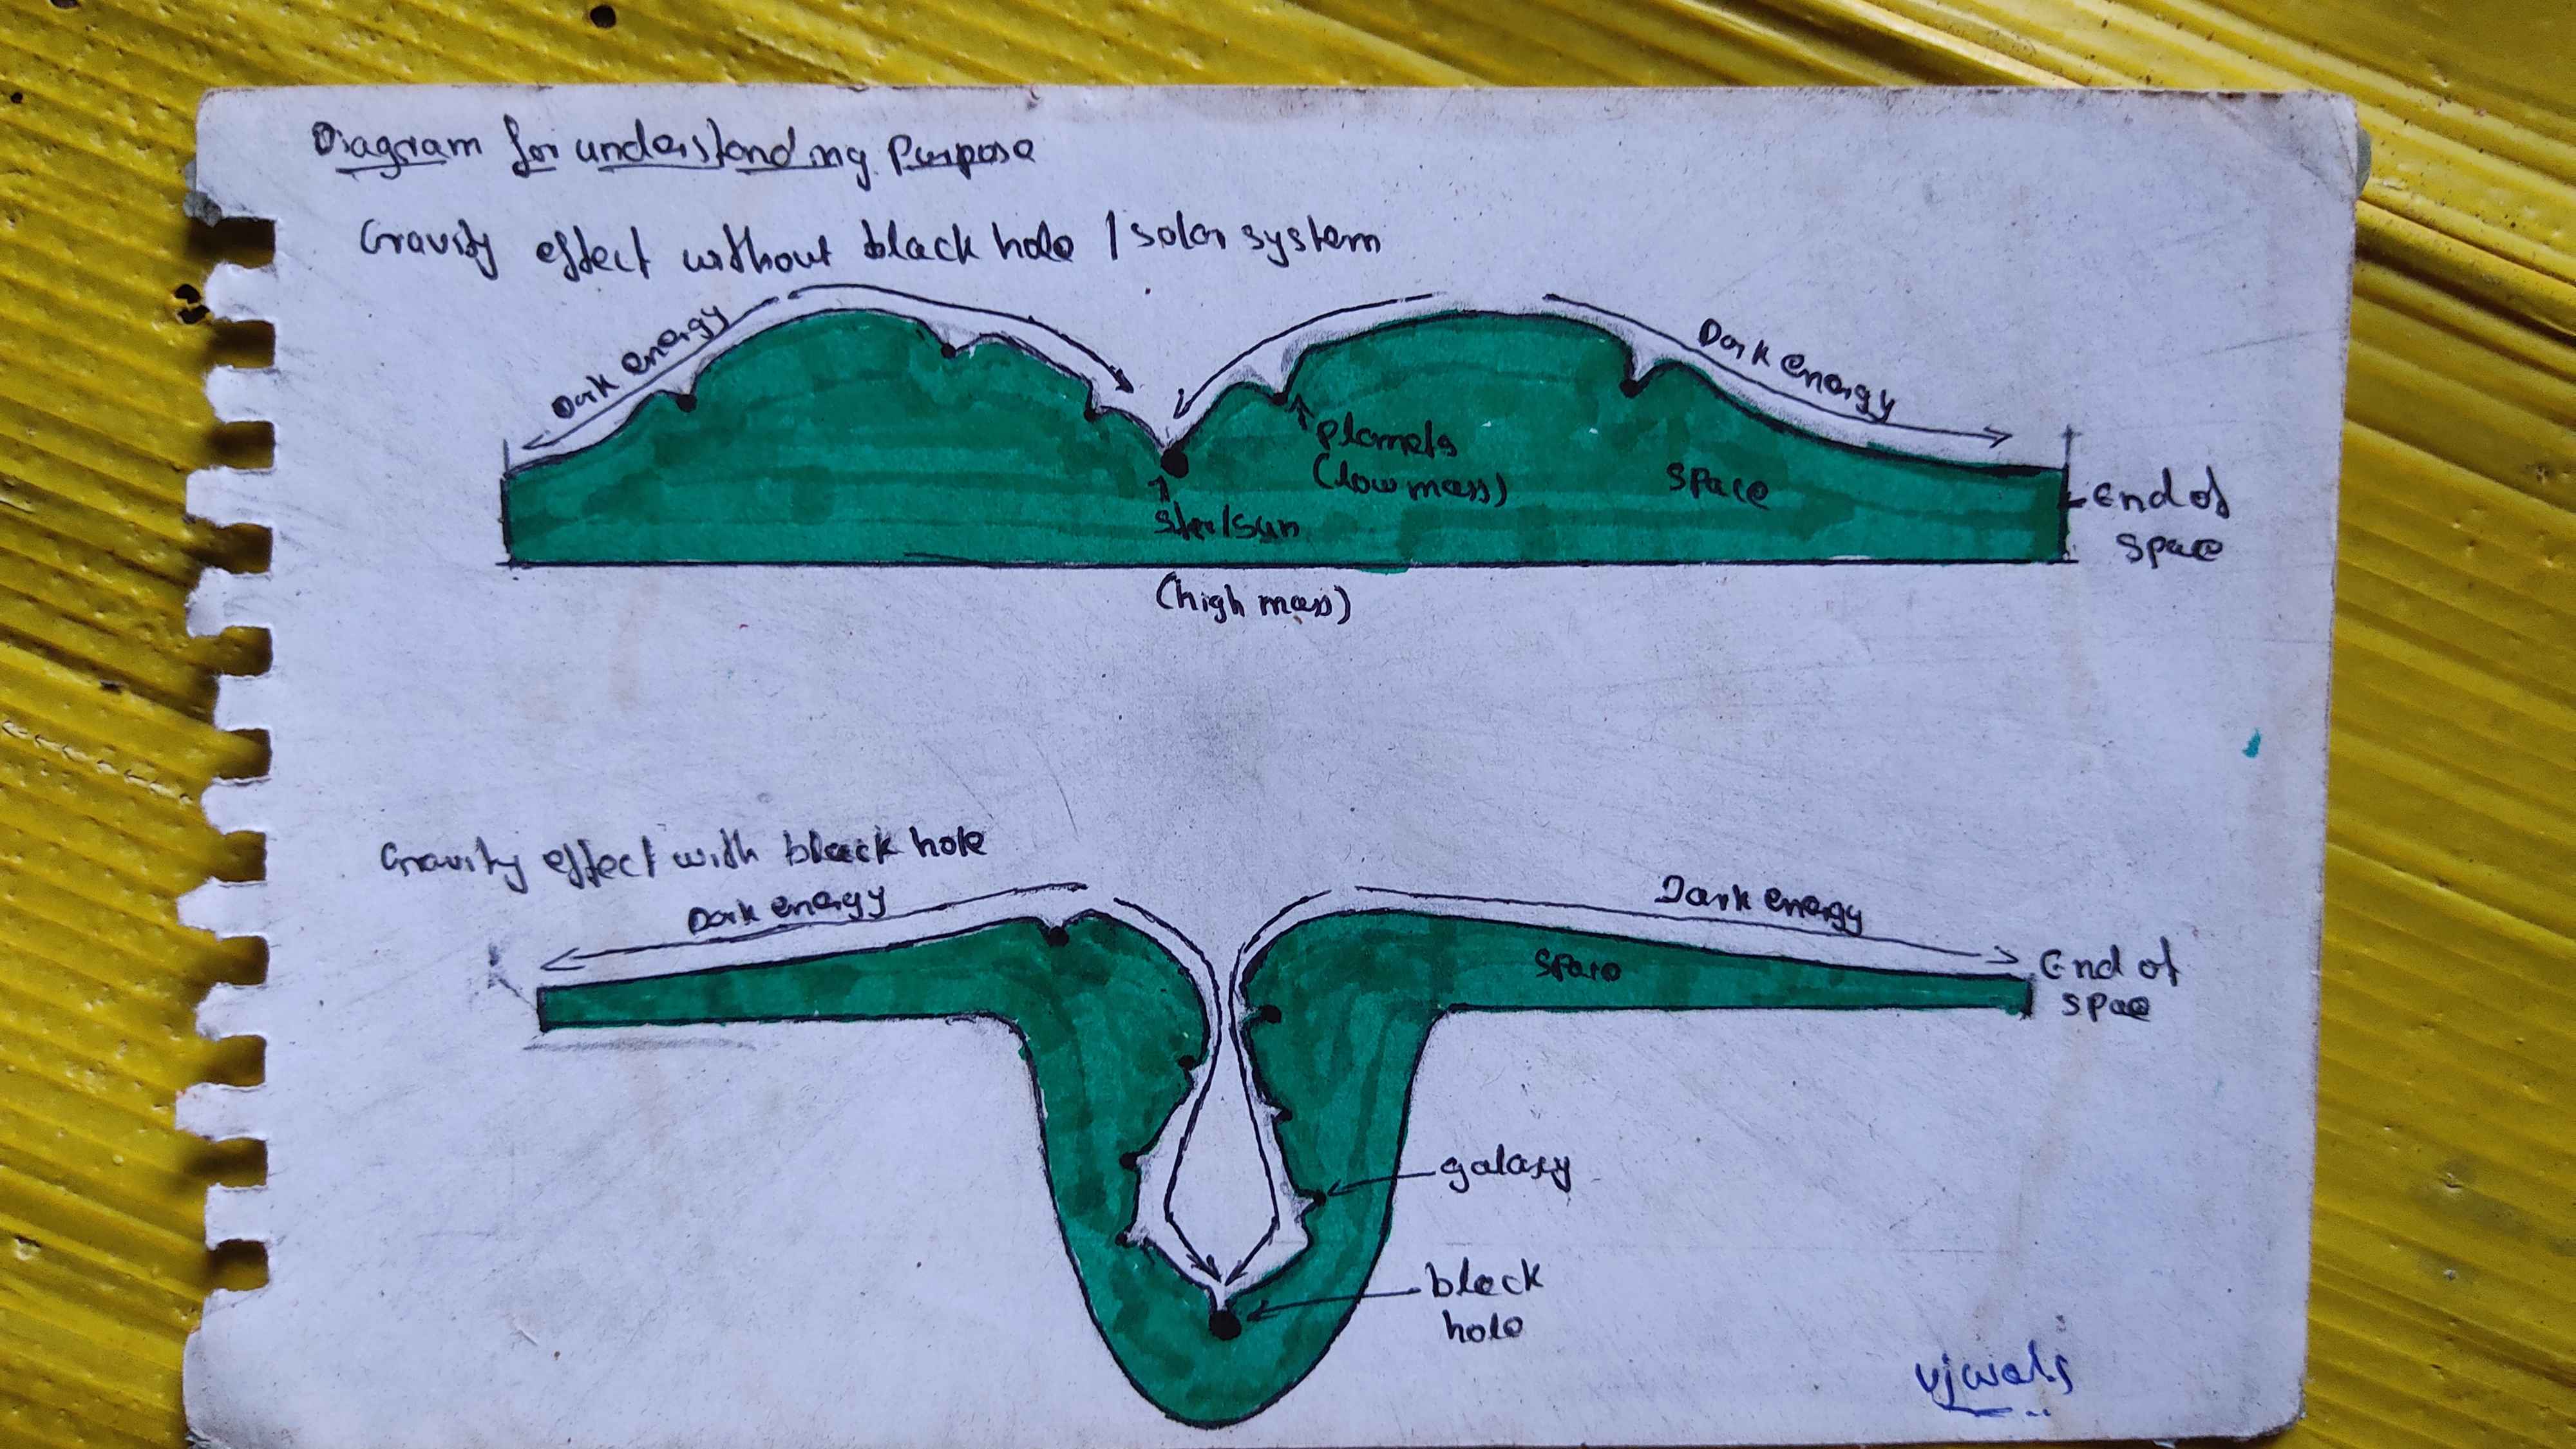 Diagram for understanding Purpose
Gravity effect without black hole / solar system
Dark energy
Dark energy
planets
(low mass)
space
star/sun
End of
space
(high mass)
Gravity effect with black hole
Dark energy
Dark energy
space
End of
space
galaxy
black
hole